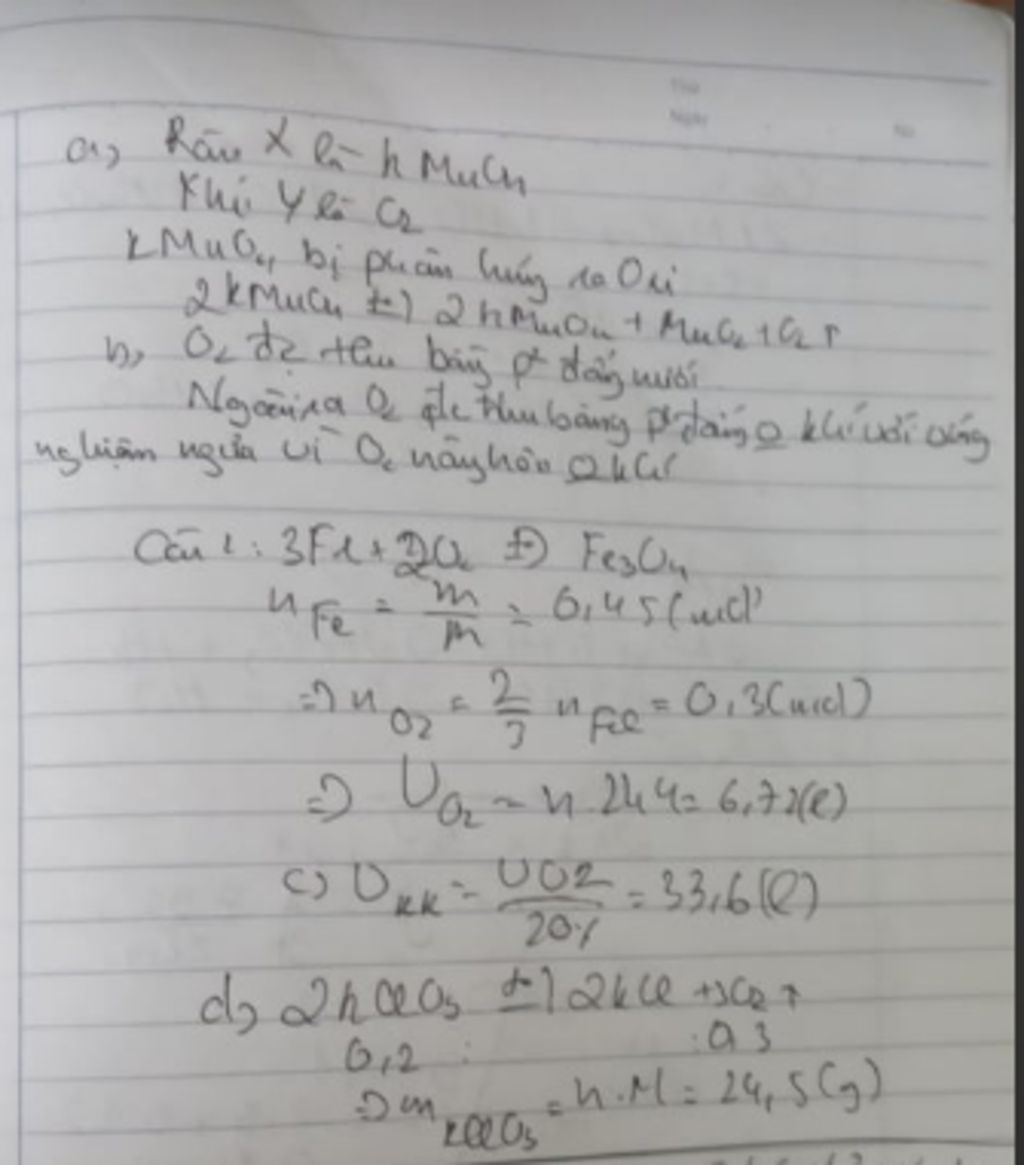 a, Rắn X là KMnO4
Khí Y là O2
KMnO4 bị phân hủy ra Oxi
2KMnO4 t→ 2KMnO4 + MnO2 + O2 ↑
b, O2 đc thu bằng p² đẩy nước
Ngoài ra O2 đc thu bằng p² đẩy 0 khí với ống
nghiệm ngửa vì O2 nặng hơn 0 khí
Câu 1: 3Fe + 2O2 t→ Fe3O4
n Fe = m/m = 0,45 (mol)
=> n O2 = 2/3 n Fe = 0,3 (mol)
=> V O2 = n 22,4 = 6,72 (l)
c) V kk = VO2/20% = 33,6 (l)
d, 2KClO3 t→ 2KCl + 3O2 ↑
0,2 : : 0,3
=> m KClO3 = n.M = 24,5 (g)